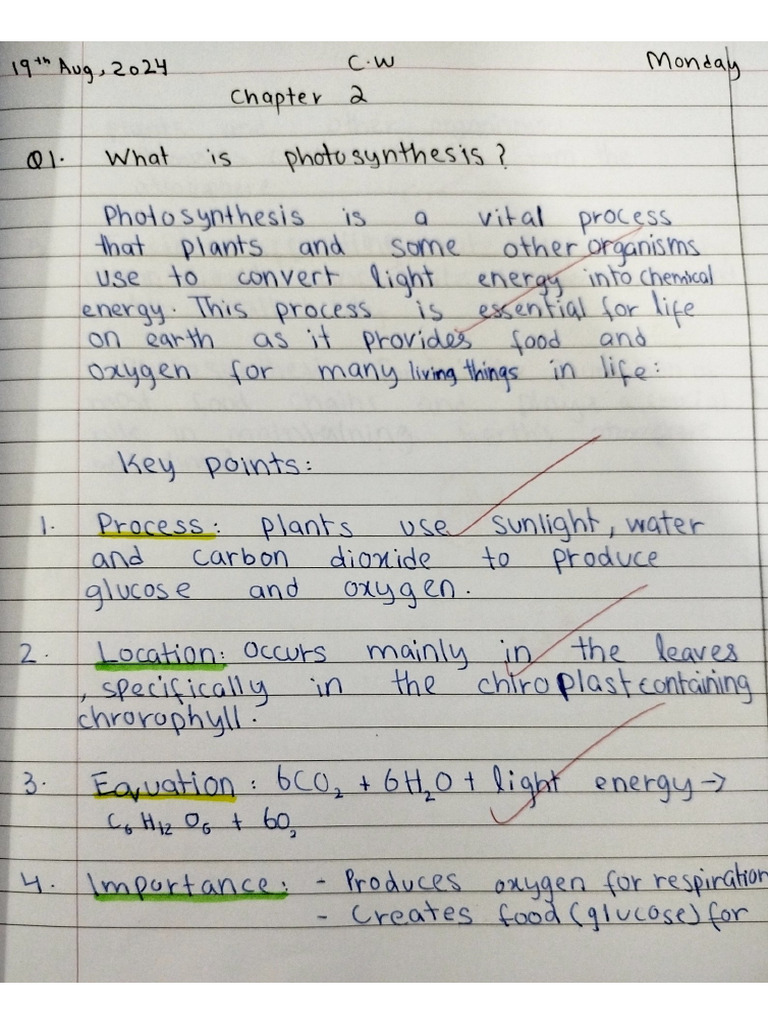 19th Aug, 2024 C.W Monday
Chapter 2
Q1. What is photosynthesis?
Photosynthesis is a vital process
that plants and some other organisms
use to convert light energy into chemical
energy. This process is essential for life
on earth as it provides food and
oxygen for many living things in life:
Key points:
1. Process: plants use sunlight, water
and carbon dioxide to produce
glucose and oxygen.
2. Location: Occurs mainly in the leaves
, specifically in the chlroplast containing
chrorophyll.
3. Equation : 6CO₂ + 6H₂O + light energy →
C₆ H₁₂ O₆ + 6O₂
4. Importance: - Produces oxygen for respiration
- Creates food (glucose) for